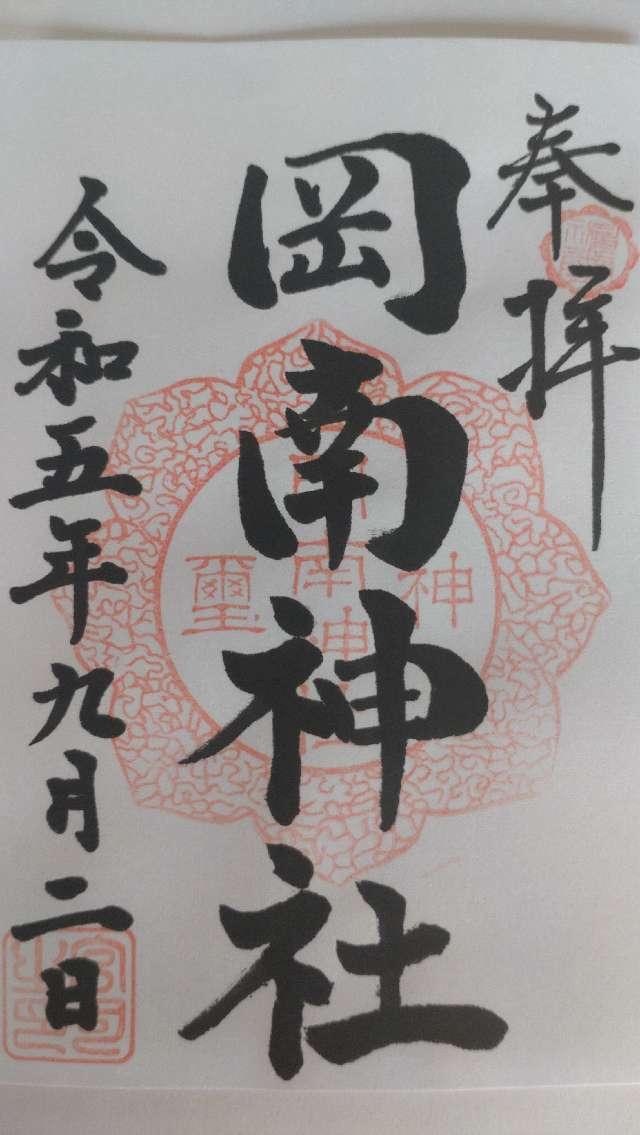 奉拝
岡南神社
令和五年九月二日
神璽